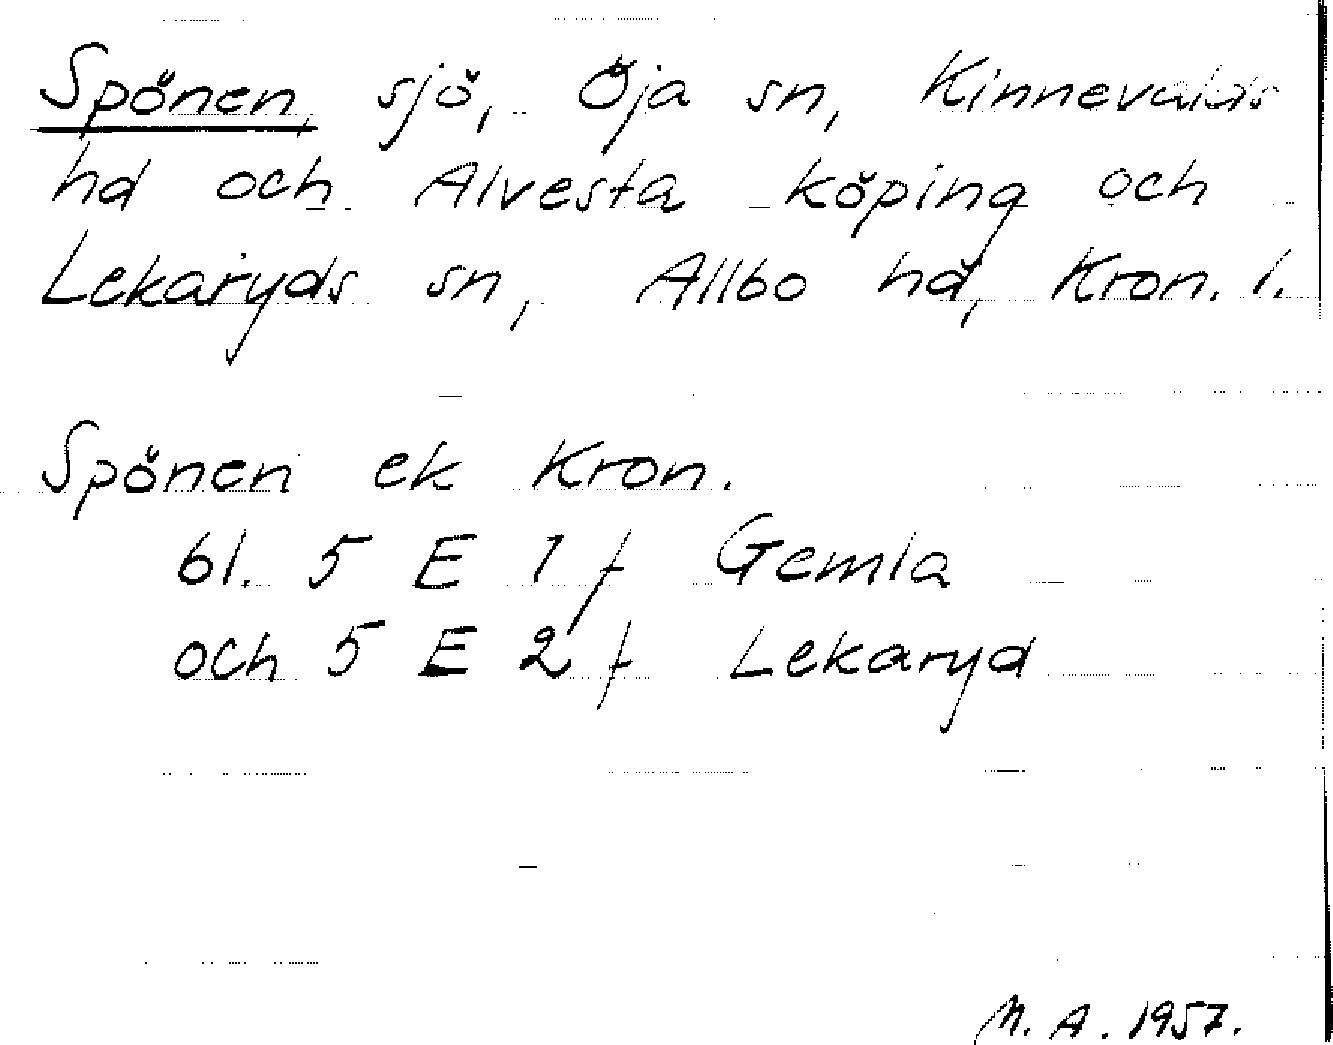 Spånen, sjö, Öja sn, Kinnevalds
hd och Alvesta köping och
Lekaryds sn, Allbo hd, Kron. l.
Spånen ek Kron.
bl. 5 E 1 f Gemla
och 5 E 2 f Lekaryd
M. A. 1957.